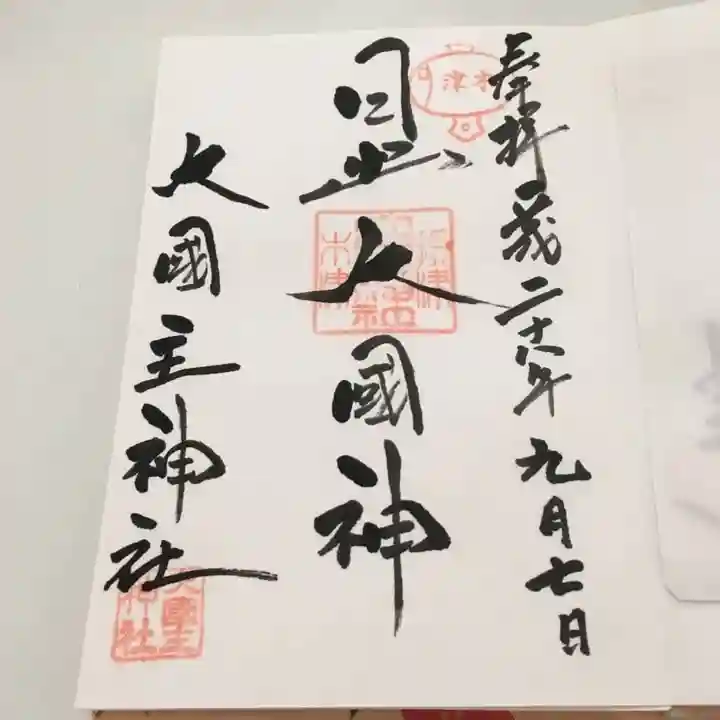 奉拝 平成二十八年九月七日
木津
日出大國神
大國主神社
大國主神社